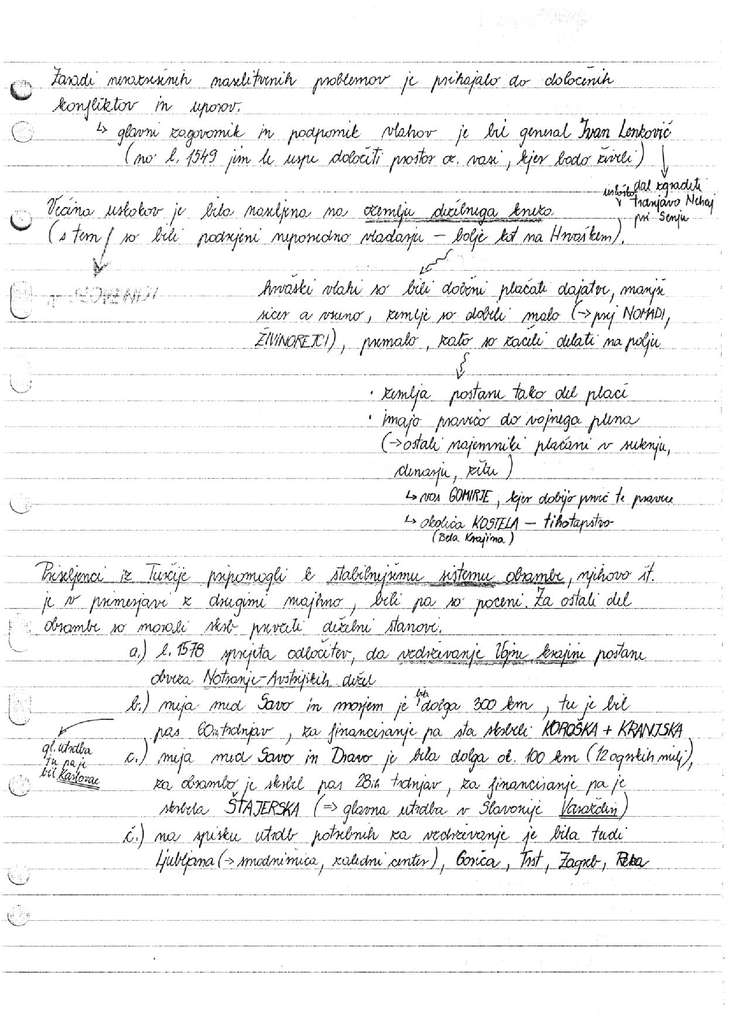 Zaradi nerazrešenih naselitvenih problemov je prihajalo do določenih
konfliktov in uporov.
↳ glavni zagovornik in podpornik vlahov je bil general Ivan Lenković
(no l. 1549 jim le uspe določiti prostor oz. vasi, kjer bodo živeli)
dal zgraditi
trdnjavo Nehaj
pri Senju
Večina uskokov je bila naseljena na ozemlju deželnega kneza
(s tem so bili podrejeni neposredno vladarju – bolje kot na Hrvaškem).
hrvaški vlahi so bili dolžni plačati dajatev, manjši
sicer a vseeno, zemlje so dobili malo (→ prej NOMADI,
ŽIVINOREJCI), premalo, zato so začeli delati na polju
• zemlja postane tako del plači
• imajo pravico do vojnega plena
(→ ostali najemniki plačani v suknju,
denarju, žitu)
↳ vas GOMIRJE, kjer dobijo prvič te pravice
↳ okolica KOSTELA – tihotapstvo
(Bela Krajina)
Priseljenci iz Turčije pripomogli k stabilnejšemu sistemu obrambe, njihovo št.
je v primerjavi z drugimi majhno, bili pa so poceni. Za ostali del
obrambe so morali skrb prevzeti deželni stanovi.
a.) l. 1578 sprejeta odločitev, da vzdrževanje Vojne krajine postane
obveza Notranje-Avstrijskih dežel
b.) meja med Savo in morjem je bila dolga 300 km, tu je bil
pas 60ih trdnjav, za financiranje pa sta skrbeli KOROŠKA + KRANJSKA
gl. utrdba
tu pa je
bil Karlovac
c.) meja med Savo in Dravo je bila dolga ok. 100 km (12 ogrskih milj),
za obrambo je skrbel pas 28ih trdnjav, za financiranje pa je
skrbela ŠTAJERSKA (⇒ glavna utrdba v Slavoniji Varaždin)
č.) na spisku utrdb potrebnih za vzdrževanje je bila tudi
Ljubljana (→ smodnišnica, zaledni center), Gorica, Trst, Zagreb, Reka